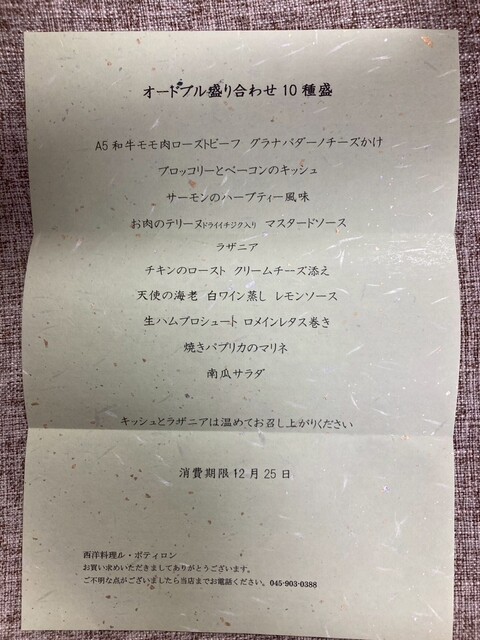 オードブル盛り合わせ 10 種盛
A5 和牛モモ肉ローストビーフ グラナパダーノチーズかけ
ブロッコリーとベーコンのキッシュ
サーモンのハーブティー風味
お肉のテリーヌドライイチジク入り マスタードソース
ラザニア
チキンのロースト クリームチーズ添え
天使の海老 白ワイン蒸し レモンソース
生ハムプロシュート ロメインレタス巻き
焼きパプリカのマリネ
南瓜サラダ
キッシュとラザニアは温めてお召し上がりください
消費期限 12 月 25 日
西洋料理ル・ポティロン
お買い求めいただきましてありがとうございます。
ご不明な点がございましたら当店までお電話ください。045-903-0388